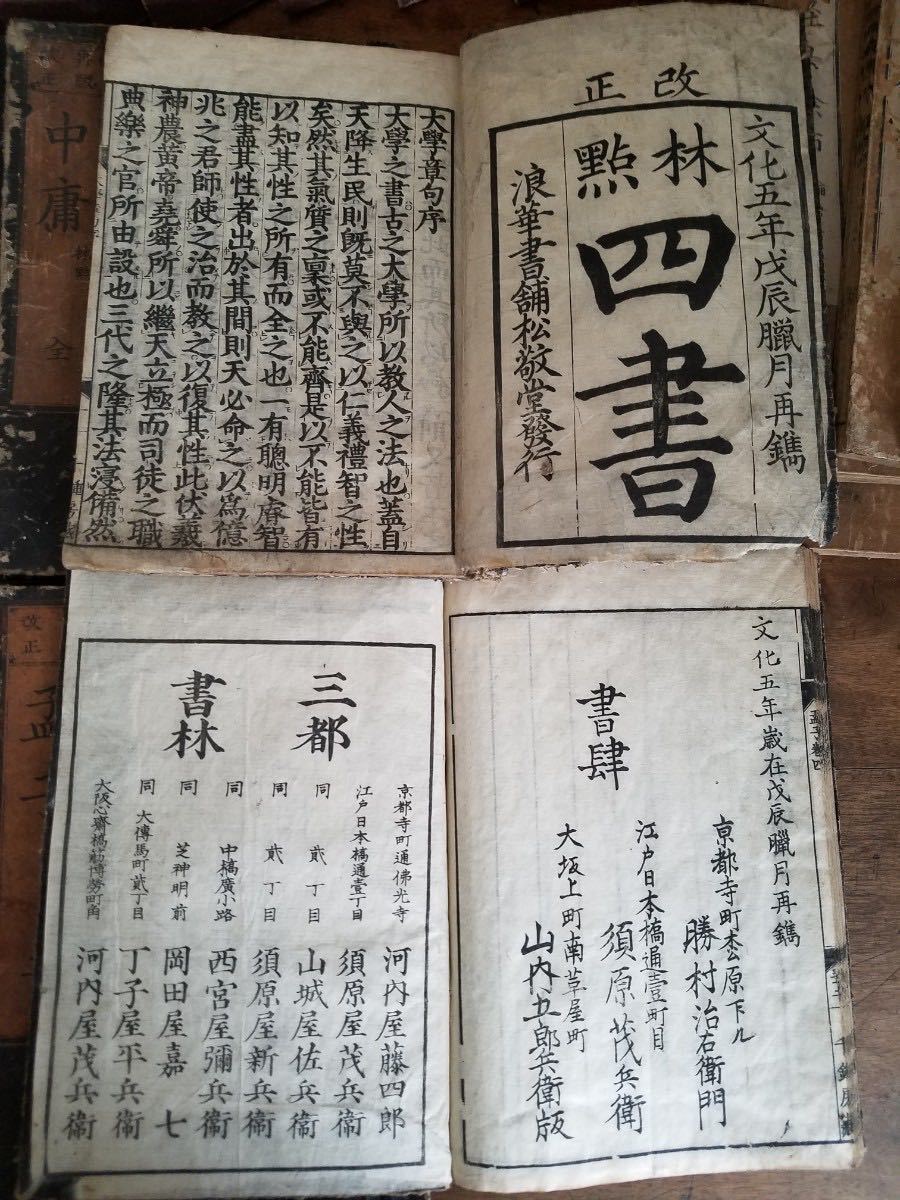 改正
文化五年戊辰臘月再鐫
林點
四書
浪華書舗松敬堂發行
大學章句序
大學之書古之大學所以教人之法也蓋自
天降生民則既莫不與之以仁義禮智之性
矣然其氣質之稟或不能齊是以不能皆有
以知其性之所有而全之也一有聰明睿智
能盡其性者出於其間則天必命之以爲億
兆之君師使之治而教之以復其性此伏羲
神農黄帝堯舜所以繼天立極而司徒之職
典樂之官所由設也三代之隆其法寖備然
中庸
全
文化五年歳在戊辰臘月再鐫
書肆
京都寺町松原下ル
勝村治右衛門
江戸日本橋通壹町目
須原茂兵衛
大坂上町南草屋町
山内五郎兵衛版
孟子卷四
三都
書林
京都寺町通佛光寺
河内屋藤四郎
江戸日本橋通壹丁目
須原屋茂兵衞
同 貳丁目
山城屋佐兵衞
同 貳丁目
須原屋新兵衞
同 中橋廣小路
西宮屋彌兵衞
同 芝神明前
岡田屋嘉七
同 大傳馬町貳丁目
丁子屋平兵衞
大阪心齋橋筋博勞町角
河内屋茂兵衞
改正